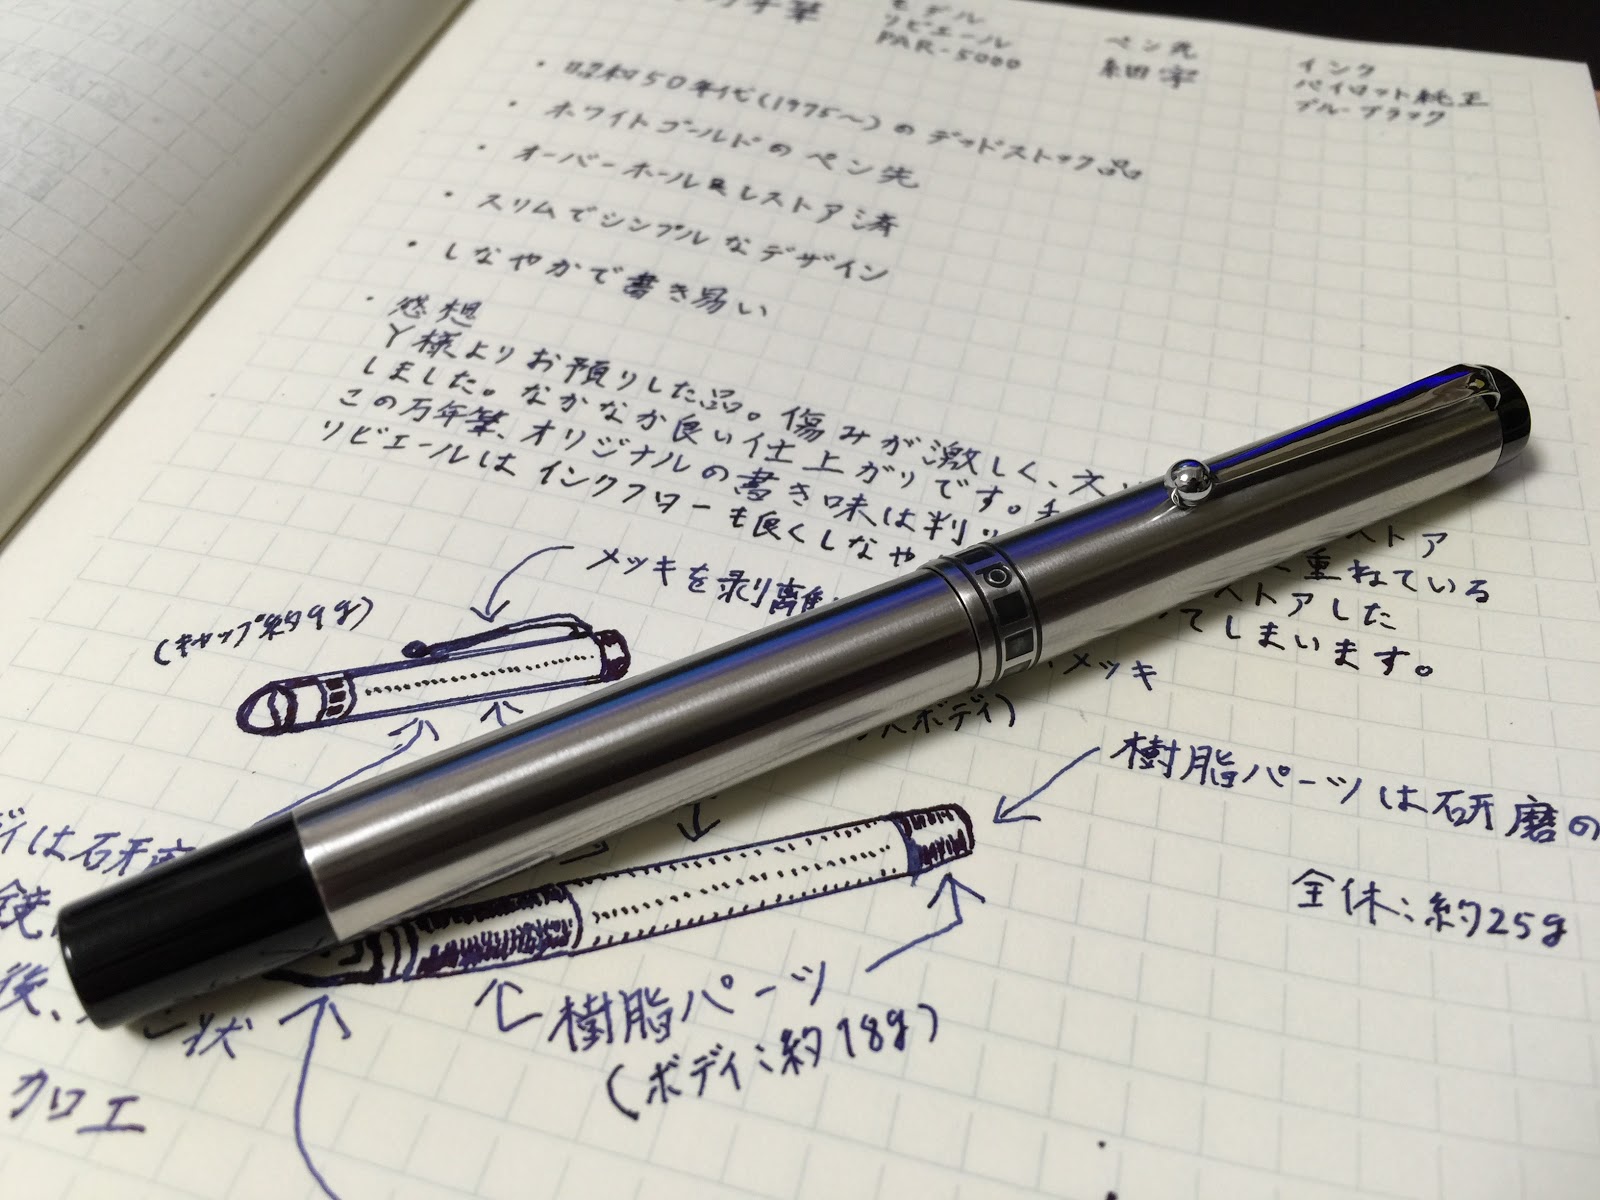 万年筆
モデル
リビエール
PAR-5000
ペン先
細字
インク
パイロット純正
ブルーブラック
・昭和50年代(1975〜)のデッドストック品
・ホワイトゴールドのペン先
・オーバーホール&レストア済
・スリムでシンプルなデザイン
・しなやかで書き易い
・感想
Y様よりお預りした品。傷みが激しく、
しました。なかなか良い仕上がりです。
この万年筆、オリジナルの書き味は判
リビエールはインクフローも良くしなや
ストア
重ねている
ストアした
てしまいます。
メッキを剥離
(キャップ約9g)
メッキ
ボディ)
樹脂パーツは研磨の
全体:約25g
ディは研磨
後、
状
加工
樹脂パーツ
(ボディ:約18g)